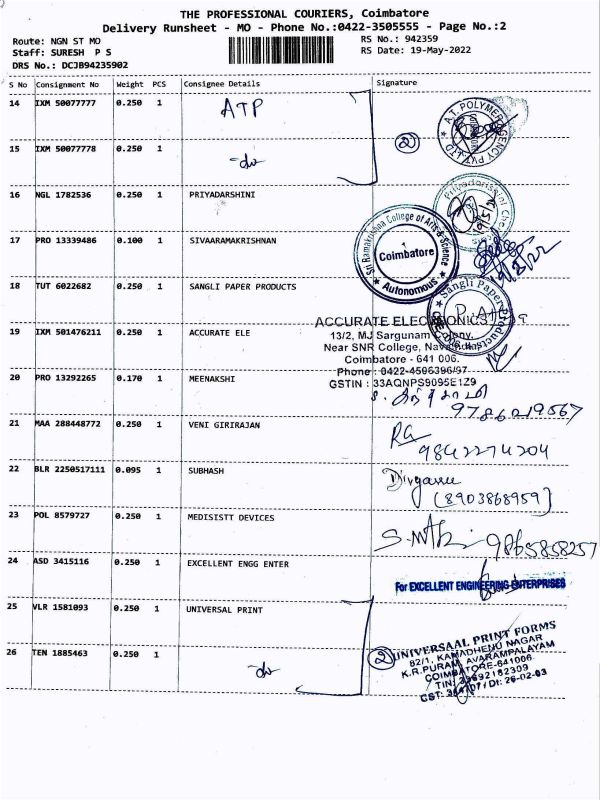 THE PROFESSIONAL COURIERS, Coimbatore
Delivery Runsheet - MO - Phone No.:0422-3505555 - Page No.:2
Route: NGN ST MO
RS No.: 942359
Staff: SURESH P S
RS Date: 19-May-2022
DRS No.: DCJB94235902
S No Consignment No Weight PCS Consignee Details Signature
14 IXM 50077777 0.250 1 ATP
A.T. POLYMER AGENCY PVT. LTD
15 IXM 50077778 0.250 1 -do
2
16 NGL 1782536 0.250 1 PRIYADARSHINI
17 PRO 13339486 0.100 1 SIVAARAMAKRISHNAN
Sri Ramakrishna College of Arts & Science
Coimbatore
Autonomous
18 TUT 6022682 0.250 1 SANGLI PAPER PRODUCTS
Sangli Paper Products
19 IXM 501476211 0.250 1 ACCURATE ELE
ACCURATE ELECTRONICS
13/2, MJ Sargunam Colony,
Near SNR College, Navaindia,
Coimbatore - 641 006.
Phone : 0422-4506396/97
GSTIN : 33AQNPS9095E1Z9
20 PRO 13292265 0.170 1 MEENAKSHI
9786219567
21 MAA 288448772 0.250 1 VENI GIRIRAJAN
9842274204
22 BLR 2250517111 0.095 1 SUBHASH
(8903868959)
23 POL 8579727 0.250 1 MEDISISTT DEVICES
9865858257
24 ASD 3415116 0.250 1 EXCELLENT ENGG ENTER
For EXCELLENT ENGINEERING ENTERPRISES
25 VLR 1581093 0.250 1 UNIVERSAL PRINT
26 TEN 1885463 0.250 1 -do
2
UNIVERSAAL PRINT FORMS
82/1, KAMADHENU NAGAR
K.R.PURAM, AVARAMPALAYAM
COIMBATORE-641006.